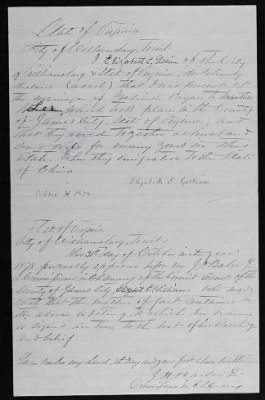 State of Virginia
City of Williamsburg, To wit:
I Elizabeth C. of the City
of Williamsburg & State of Virginia, do solemnly
declare that I was present at
the marriage of Bryan to
which took place in the County
of James City, State of Virginia, and
that they lived together as husband
and wife for many years in this
state, when they emigrated to the State
of Ohio.
Elizabeth
October 31. 187
State of Virginia
City of Williamsburg, To wit:
This 31st day of October in the year
187 personally appeared before me J. H. Barlow
a Commissioner in Chancery of the Circuit Court of the
County of James City, Elizabeth C. who made
oath that the matters of fact contained in
the above writing, to which her name
is signed is true to the best of her knowledge
and belief
Given under my hand, the day and year first above written
J. H. Barlow
Commissioner in Chancery